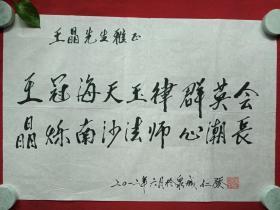 王晶先生雅正
王冠海天玉律群英会
晶烁南沙法师心潮长
二〇一六年六月於泉城 仁骏